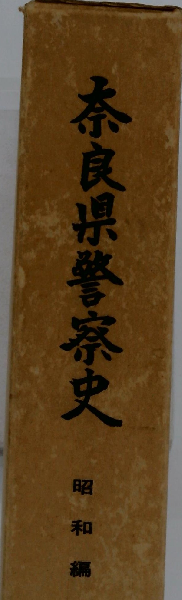 奈良県警察史
昭和編